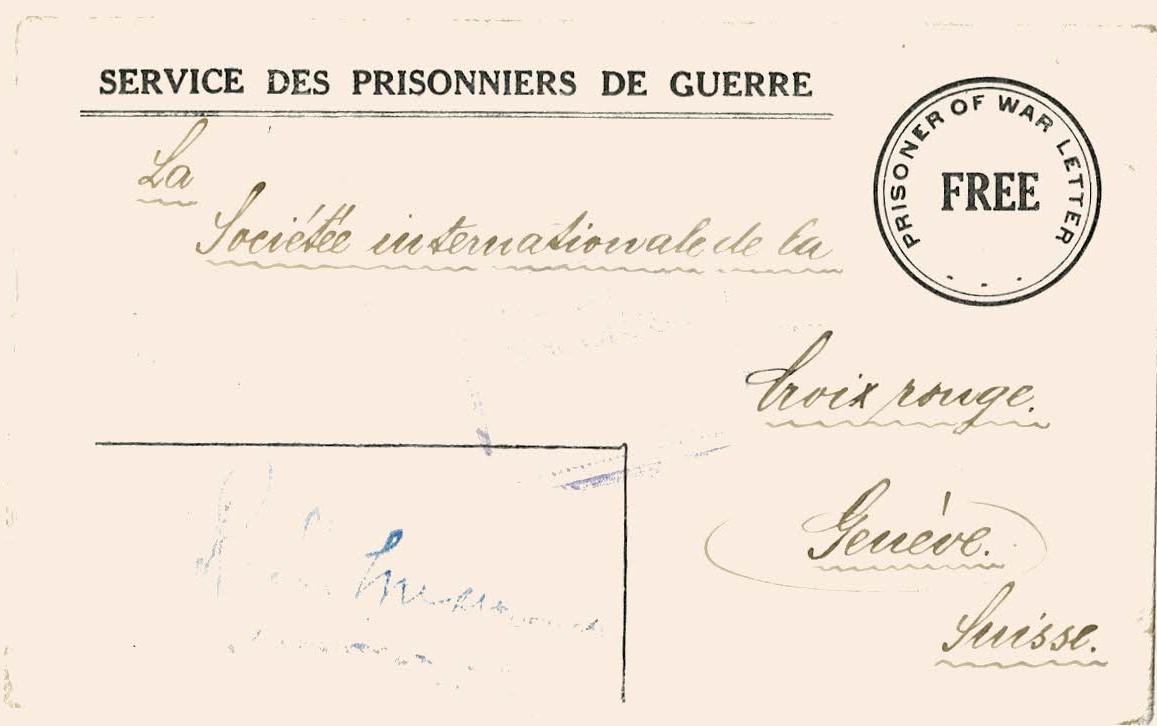 SERVICE DES PRISONNIERS DE GUERRE
PRISONER OF WAR LETTER
FREE
La
Sociétée internationale de la
Croix rouge.
Genéve.
Suisse.